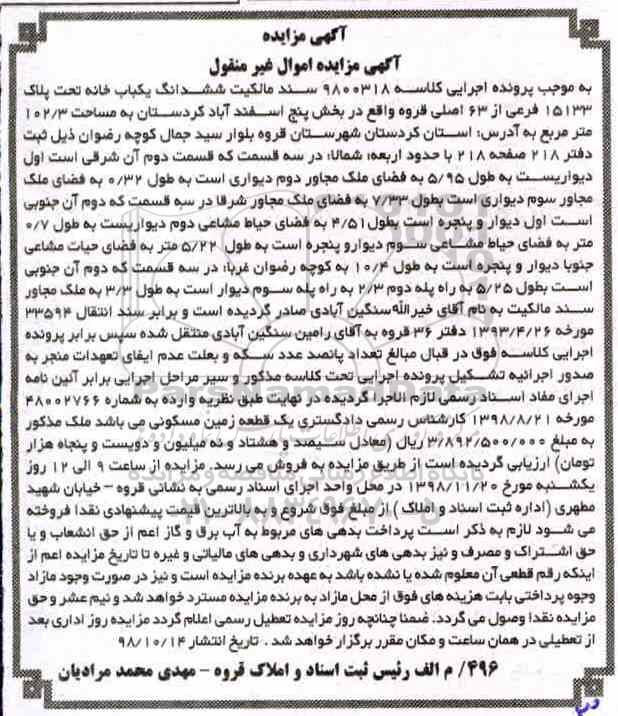 آگهی مزایده
آگهی مزایده اموال غیر منقول
به موجب پرونده اجرایی کلاسه ۹۸۰۰۳۱۸ سند مالکیت ششدانگ یکباب خانه تحت پلاک
۱۵۱۳۳ فرعی از ۶۳ اصلی قروه واقع در بخش پنج اسفند آباد کردستان به مساحت ۱۰۲/۳
متر مربع به آدرس: استان کردستان شهرستان قروه بلوار سید جمال کوچه رضوان ذیل ثبت
دفتر ۲۱۸ صفحه ۲۱۸ با حدود اربعه: شمالا: در سه قسمت که قسمت دوم آن شرقی است اول
دیواریست به طول ۵/۹۵ به فضای ملک مجاور دوم دیواری است به طول ۰/۳۲ به فضای ملک
مجاور سوم دیواری است بطول ۷/۳۳ به فضای ملک مجاور شرقا در سه قسمت که دوم آن جنوبی
است اول دیوار و پنجره است بطول ۴/۵۱ به فضای حیاط مشاعی دوم دیواریست به طول ۰/۷
متر به فضای حیاط مشاعی سوم دیوارو پنجره است به طول ۵/۲۲ متر به فضای حیات مشاعی
جنوبا دیوار و پنجره است به طول ۱۰/۴ به کوچه رضوان غربا: در سه قسمت که دوم آن جنوبی
است بطول ۵/۲۵ به راه پله دوم ۲/۳ به راه پله سوم دیوار است به طول ۳/۳ به ملک مجاور
سند مالکیت به نام آقای خیرالله سنگین آبادی صادر گردیده است و برابر سند انتقال ۳۳۵۹۴
مورخه ۱۳۹۳/۴/۲۶ دفتر ۳۶ قروه به آقای رامین سنگین آبادی منتقل شده سپس برابر پرونده
اجرایی کلاسه فوق در قبال مبالغ تعداد پانصد عدد سکه و بعلت عدم ایفای تعهدات منجر به
صدور اجرائیه تشکیل پرونده اجرایی تحت کلاسه مذکور و سیر مراحل اجرایی برابر آئین نامه
اجرای مفاد اسناد رسمی لازم الاجرا گردیده در نهایت طبق نظریه وارده به شماره ۴۸۰۰۲۷۶۶
مورخه ۱۳۹۸/۸/۲۱ کارشناس رسمی دادگستری یک قطعه زمین مسکونی می باشد ملک مذکور
به مبلغ ۳/۸۹۲/۵۰۰/۰۰۰ ریال (معادل سیصد و هشتاد و نه میلیون و دویست و پنجاه هزار
تومان) ارزیابی گردیده است از طریق مزایده به فروش می رسد. مزایده از ساعت ۹ الی ۱۲ روز
یکشنبه مورخ ۱۳۹۸/۱۱/۲۰ در محل واحد اجرای اسناد رسمی به نشانی قروه – خیابان شهید
مطهری (اداره ثبت اسناد و املاک ) از مبلغ فوق شروع و به بالاترین قیمت پیشنهادی نقدا فروخته
می شود لازم به ذکر است پرداخت بدهی های مربوط به آب برق و گاز اعم از حق انشعاب و یا
حق اشتراک و مصرف و نیز بدهی های شهرداری و بدهی های مالیاتی و غیره تا تاریخ مزایده اعم از
اینکه رقم قطعی آن معلوم شده یا نشده باشد به عهده برنده مزایده است و نیز در صورت وجود مازاد
وجوه پرداختی بابت هزینه های فوق از محل مازاد به برنده مزایده مسترد خواهد شد و نیم عشر و حق
مزایده نقدا وصول می گردد. ضمنا چنانچه روز مزایده تعطیل رسمی اعلام گردد مزایده روز اداری بعد
از تعطیلی در همان ساعت و مکان مقرر برگزار خواهد شد . تاریخ انتشار ۹۸/۱۰/۱۴
۴۹۶/ م الف رئیس ثبت اسناد و املاک قروه – مهدی محمد مرادیان